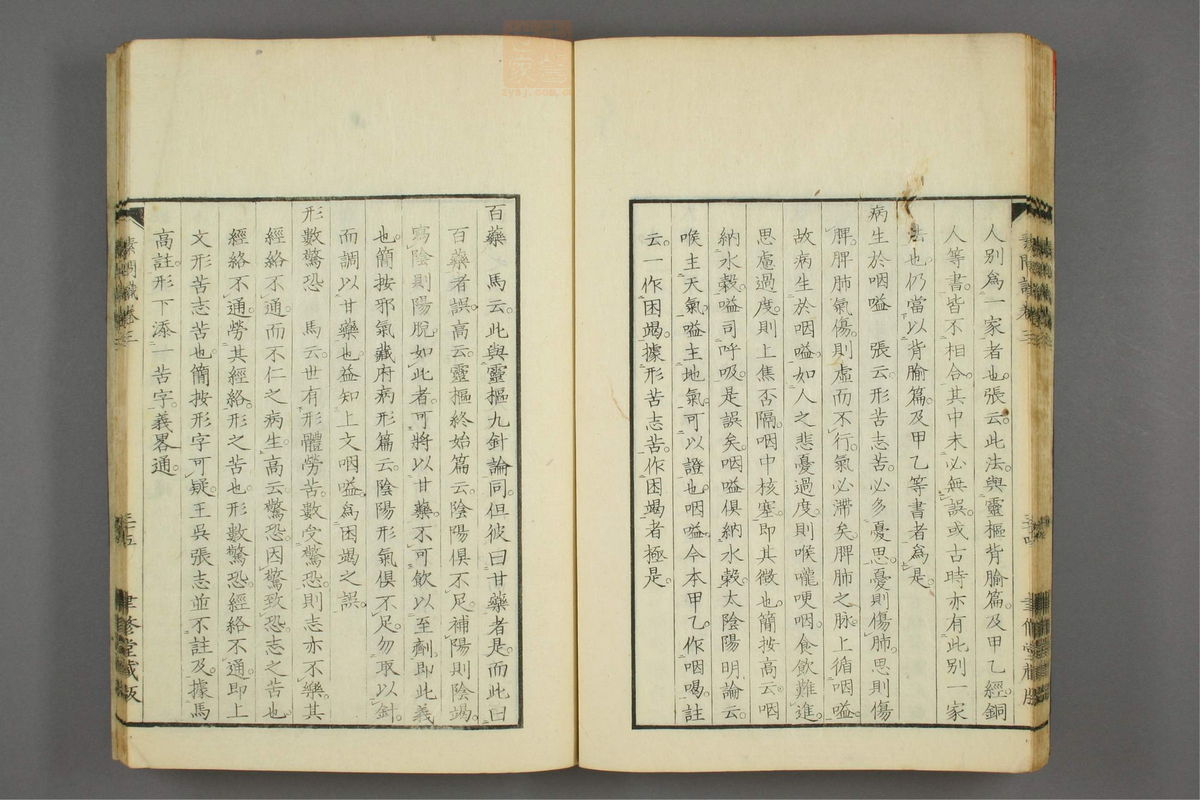 人別爲一家者也。張云。此法與靈樞背腧篇。及甲乙經。銅
人等書。皆不相合。其中未必無誤。或古時亦有此別一家
法也。仍當以背腧篇。及甲乙等書者爲是。
病生於咽嗌　張云。形苦志苦。必多憂思。憂則傷肺。思則傷
脾。脾肺氣傷。則虛而不行。氣必滯矣。脾肺之脉。上循咽嗌。
故病生於咽嗌。如人之悲憂過度。則喉嚨哽咽。食飲難進。
思慮過度。則上焦否隔。咽中核塞。即其徵也。簡按高云。咽
納水穀。嗌司呼吸。是誤矣。咽嗌俱納水穀。太陰陽明論云。
喉主天氣。嗌主地氣。可以證也。咽嗌。今本甲乙。作咽喝。註
云。一作困竭。據形苦志苦。作困竭者極是。
百藥　馬云。此與靈樞九針論同。但彼曰甘藥者是。而此曰
百藥者誤。高云。靈樞終始篇云。陰陽俱不足。補陽則陰竭。
寫陰則陽脫。如此者。可將以甘藥。不可飲以至劑。即此義
也。簡按邪氣藏府病形篇云。陰陽形氣俱不足。勿取以針。
而調以甘藥也。益知上文咽嗌。爲困竭之誤。
形數驚恐　馬云。世有形體勞苦。數受驚恐。則志亦不樂。其
經絡不通。而不仁之病生。高云。驚恐。因驚致恐。志之苦也。
經絡不通。勞其經絡。形之苦也。形數驚恐。經絡不通。即上
文形苦志苦也。簡按形字可疑。王吳張志並不註及。據馬
高註。形下添一苦字。義畧通。
素問識卷三
三十五
聿修堂藏版